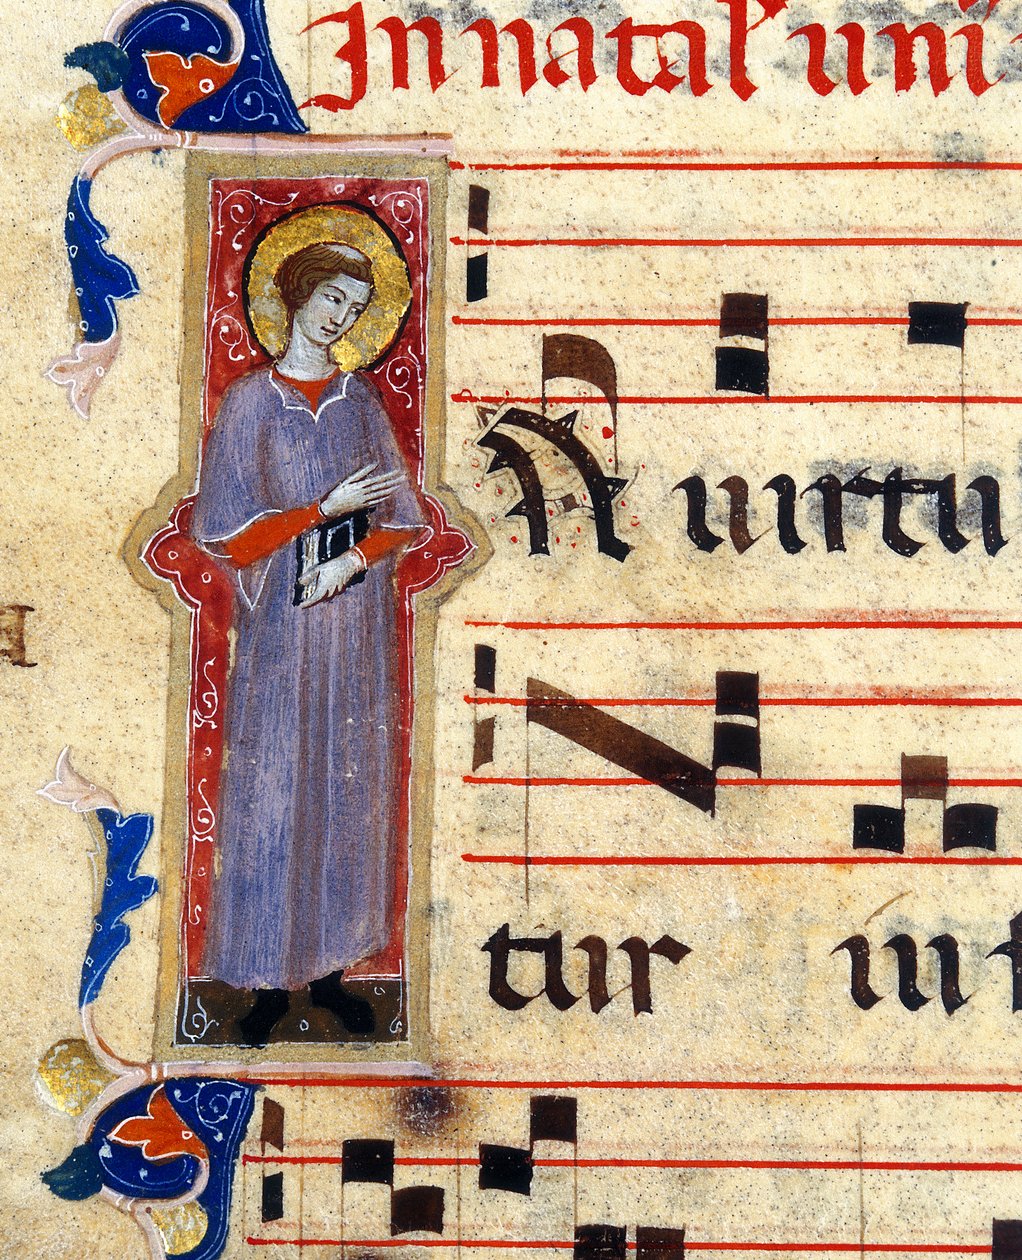 In natal' uni
IN uirtu
tur ius